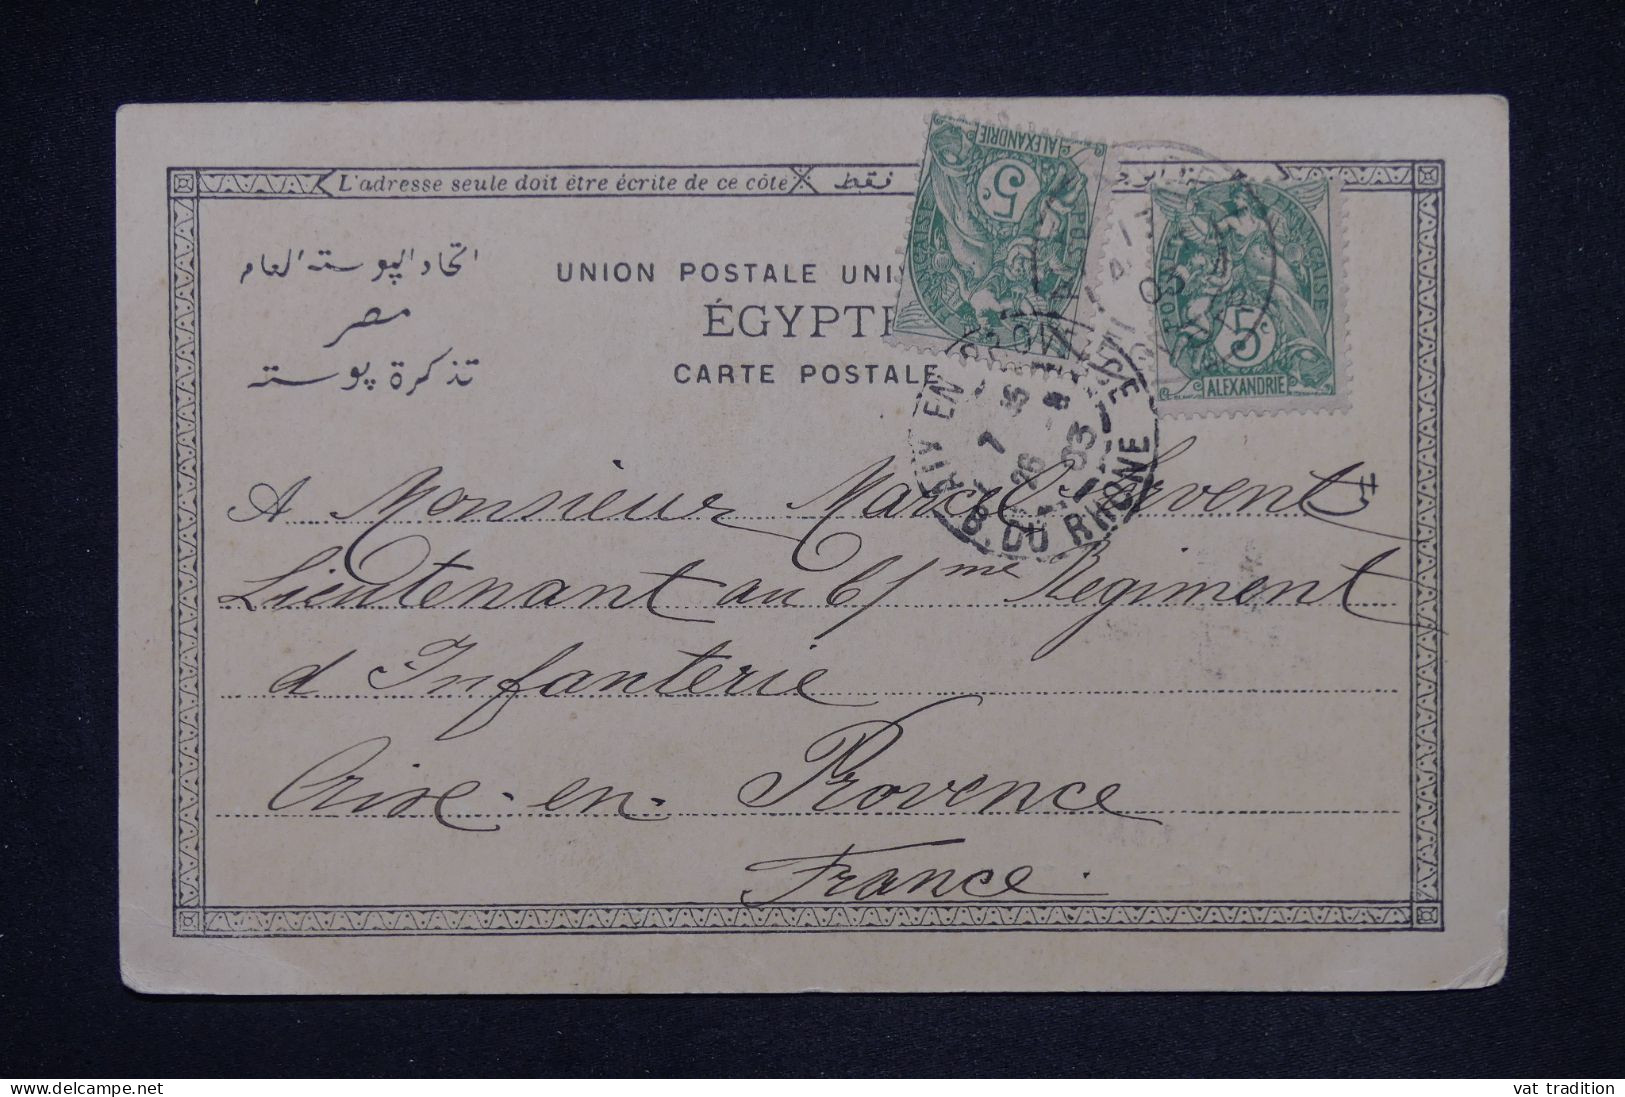 L'adresse seule doit être écrite de ce côté فقط
اتحاد البوسته العام
مصر
تذكرة بوسته
UNION POSTALE UNI
ÉGYPTE
CARTE POSTALE
ALEXANDRIE
5c
POSTES
FRANÇAISE
5c
ALEXANDRIE
03
EN
26
03
B. DU RHONE
A Monsieur Marcel
Lieutenant au 61me Regiment
d Infanterie
Aix-en-Provence
France.
vat tradition
www.delcampe.net